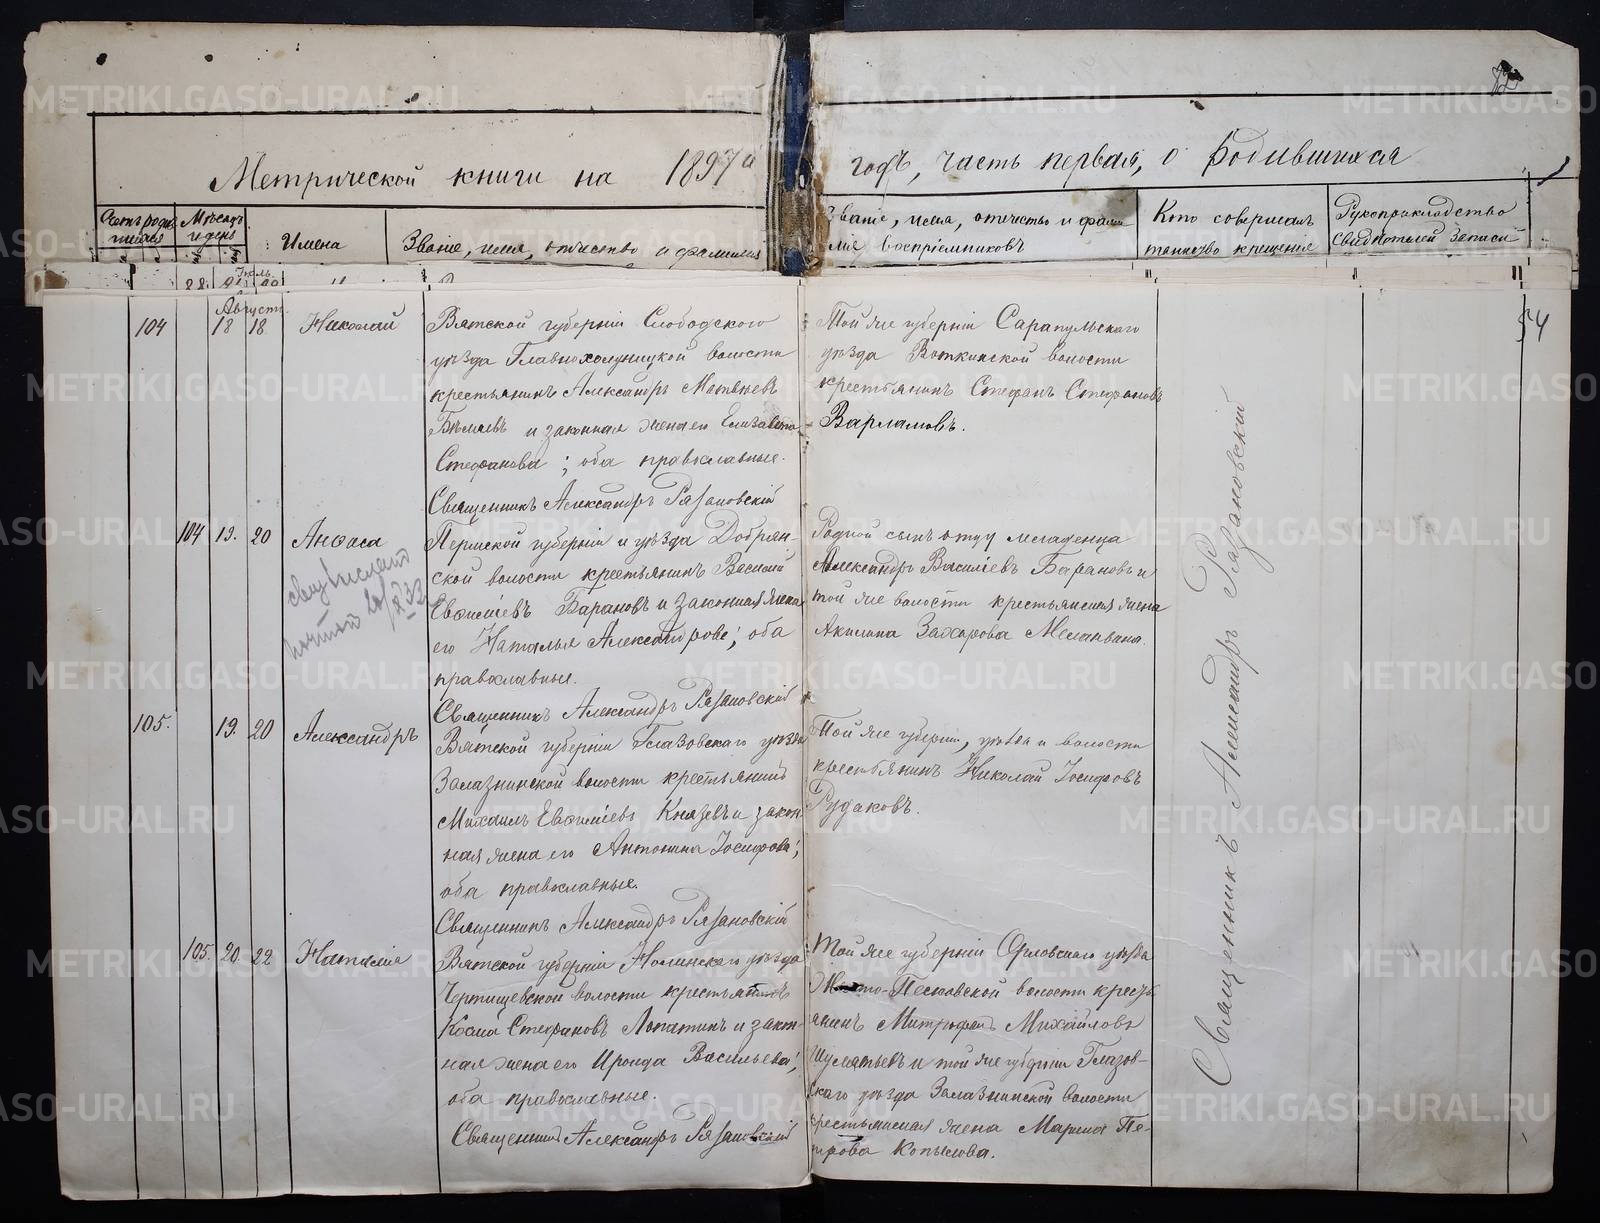 Метрической книги на 1897й
годъ, часть первая, о Родившихся
Счетъ родив
шихся
Мѣсяцъ
и день
Имена
Званіе, имя, отчество и фамилия
Званіе, имя, отчество и фами
лия воспріемниковъ
Кто совершалъ
таинство крещения
Рукоприкладство
свидѣтелей записи
Іюль
Августъ
104 18 18 Николай
Вятской губерніи Слободского
уѣзда Главнохолуницкой волости
крестьянинъ Александръ Матѣевъ
Бѣляевъ и законная жена его Елизавета
Стефанова; оба православные.
Священникъ Александръ Рязановскій
Той же губерніи Сарапульскаго
уѣзда Воткинской волости
крестьянинъ Стефанъ Стефановъ
Варламовъ.
54
104 19. 20 Анѳиса
Пермской губерніи и уѣзда Добрян-
ской волости крестьянинъ Василій
Евѳиміевъ Барановъ и законная жена
его Наталья Александрова; оба
православные.
Священникъ Александръ Рязановскій
Родной сынъ отцу младенца
Александръ Василіевъ Барановъ и
той же волости крестьянская жена
Акилина Захарова
105. 19. 20 Александръ
Вятской губерніи Глазовскаго уѣзда
Залазнинской волости крестьянинъ
Михаилъ Евѳиміевъ Князевъ и закон
ная жена его Антонина Іосифова;
оба православные.
Священникъ Александръ Рязановскій
Той же губерніи, уѣзда и волости
крестьянинъ Николай Іосифовъ
Рудаковъ.
105. 20. 22 Наталія
Вятской губерніи Нолинскаго уѣзда
Чертищевской волости крестьянинъ
Косма Стефановъ Лопатинъ и закон-
ная жена его Ироида Васильева;
оба православные.
Священникъ Александръ Рязановскій
Той же губерніи Орловскаго уѣзда
Песковской волости кресть
янинъ Митрофанъ Михайловъ
Шулятьевъ и той же губерніи Глазов-
скаго уѣзда Залазнинской волости
крестьянская жена Марина Пе-
трова Копылова.
Священникъ Александръ Рязановский
METRIKI.GASO-URAL.RU